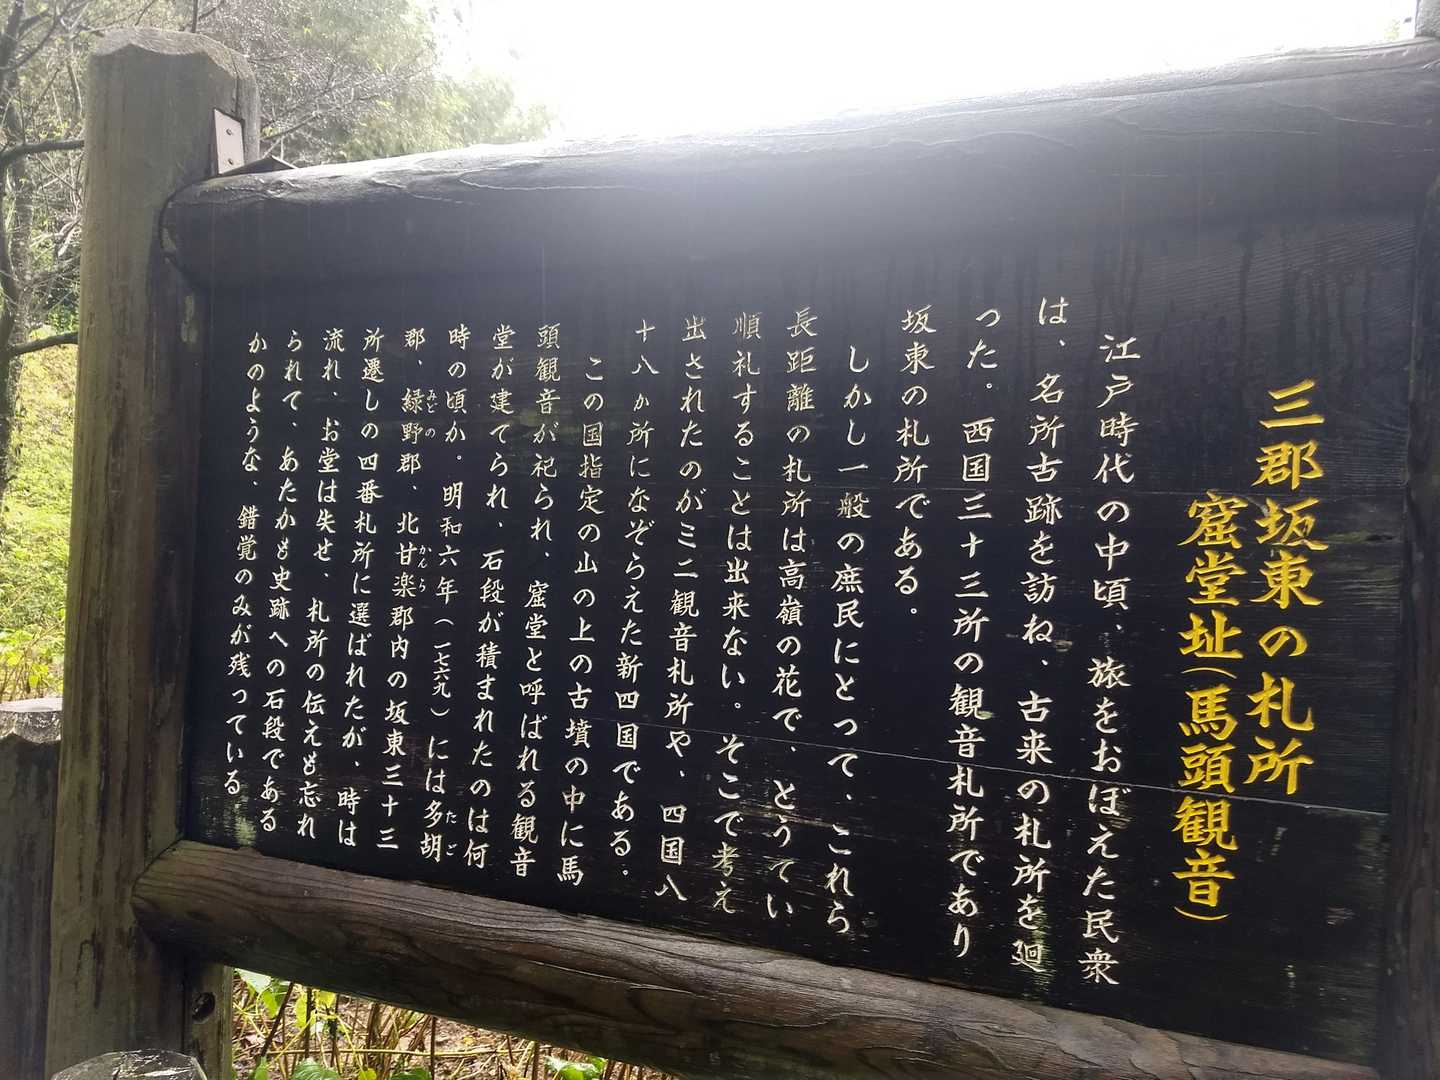 三郡坂東の札所
窟堂址(馬頭観音)
江戸時代の中頃、旅をおぼえた民衆
は、名所古跡を訪ね、古来の札所を廻
った。西国三十三所の観音札所であり
坂東の札所である。
しかし一般の庶民にとって、これら
長距離の札所は高嶺の花で、とうてい
順礼することは出来ない。そこで考え
出されたのがミニ観音札所や、四国八
十八か所になぞらえた新四国である。
この国指定の山の上の古墳の中に馬
頭観音が祀られ、窟堂と呼ばれる観音
堂が建てられ、石段が積まれたのは何
時の頃か。明和六年(一七六九)には多胡
郡、緑野郡、北甘楽郡内の坂東三十三
所遷しの四番札所に選ばれたが、時は
流れ、お堂は失せ、札所の伝えも忘れ
られて、あたかも史跡への石段である
かのような、錯覚のみが残っている
みどの
かんら
たご